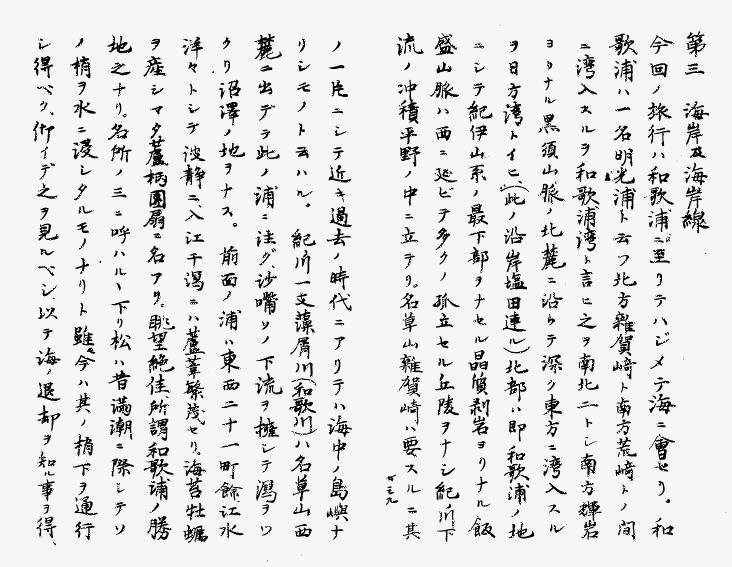 第三　海岸及海岸線
今回ノ旅行ハ和歌浦ニ至リテハジメテ海ニ會セリ。和
歌浦ハ一名明光浦ト云フ北方雜賀崎ト南方荒崎トノ間
ニ湾入スルヲ和歌浦湾ト言ヒ之ヲ南北ニトシ南方輝岩
ヨリナル黒須山脈ノ北麓ニ沿ウテ深ク東方ニ湾入スル
ヲ日方湾トイヒ、(此ノ沿岸塩田連ル)北部ハ即和歌浦ノ地
ニシテ紀伊山系ノ最下部ヲナセル晶質剥岩ヨリナル飯
盛山脈ハ西ニ延ビテ多クノ孤立セル丘陵ヲナシ紀ノ川下
流ノ冲積平野ノ中ニ立テリ。名草山雜賀崎ハ要スルニ其
ノ一片ニシテ近キ過去ノ時代ニアリテハ海中ノ島嶼ナ
リシモノト云ハル。紀川ノ一支藻屑川(和歌川)ハ名草山西
麓ニ出デヲ此ノ浦ニ注グ、沙嘴ソノ下流ヲ擁シテ瀉ヲツ
クリ沼澤ノ地ヲナス。前面ノ浦ハ東西二十一町餘、江水
洋々トシテ波静ニ、入江干瀉ニハ蘆葦繁茂セリ。海苔牡蠣
ヲ産シマタ蘆柄團扇ニ名アリ。眺望絶佳、所謂和歌浦ノ勝
地之ナリ。名所ノ三ニ呼ハルヽ下リ松ハ昔満潮ニ際シテソ
ノ梢ヲ水ニ浸シタルモノナリト雖モ今ハ其ノ梢下ヲ通行
シ得ベク、仰イデ之ヲ見ルベシ、以テ海ノ退却ヲ知ル事ヲ得、